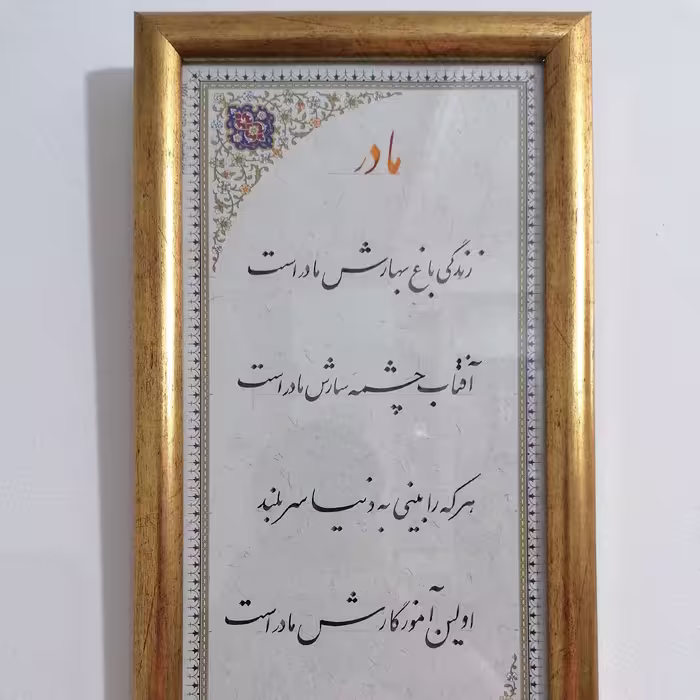 مادر
زندگی باغ بهارش مادر است
آفتاب چشمه سارش مادر است
هر که را بینی به دنیا سربلند
اولین آموزگارش مادر است